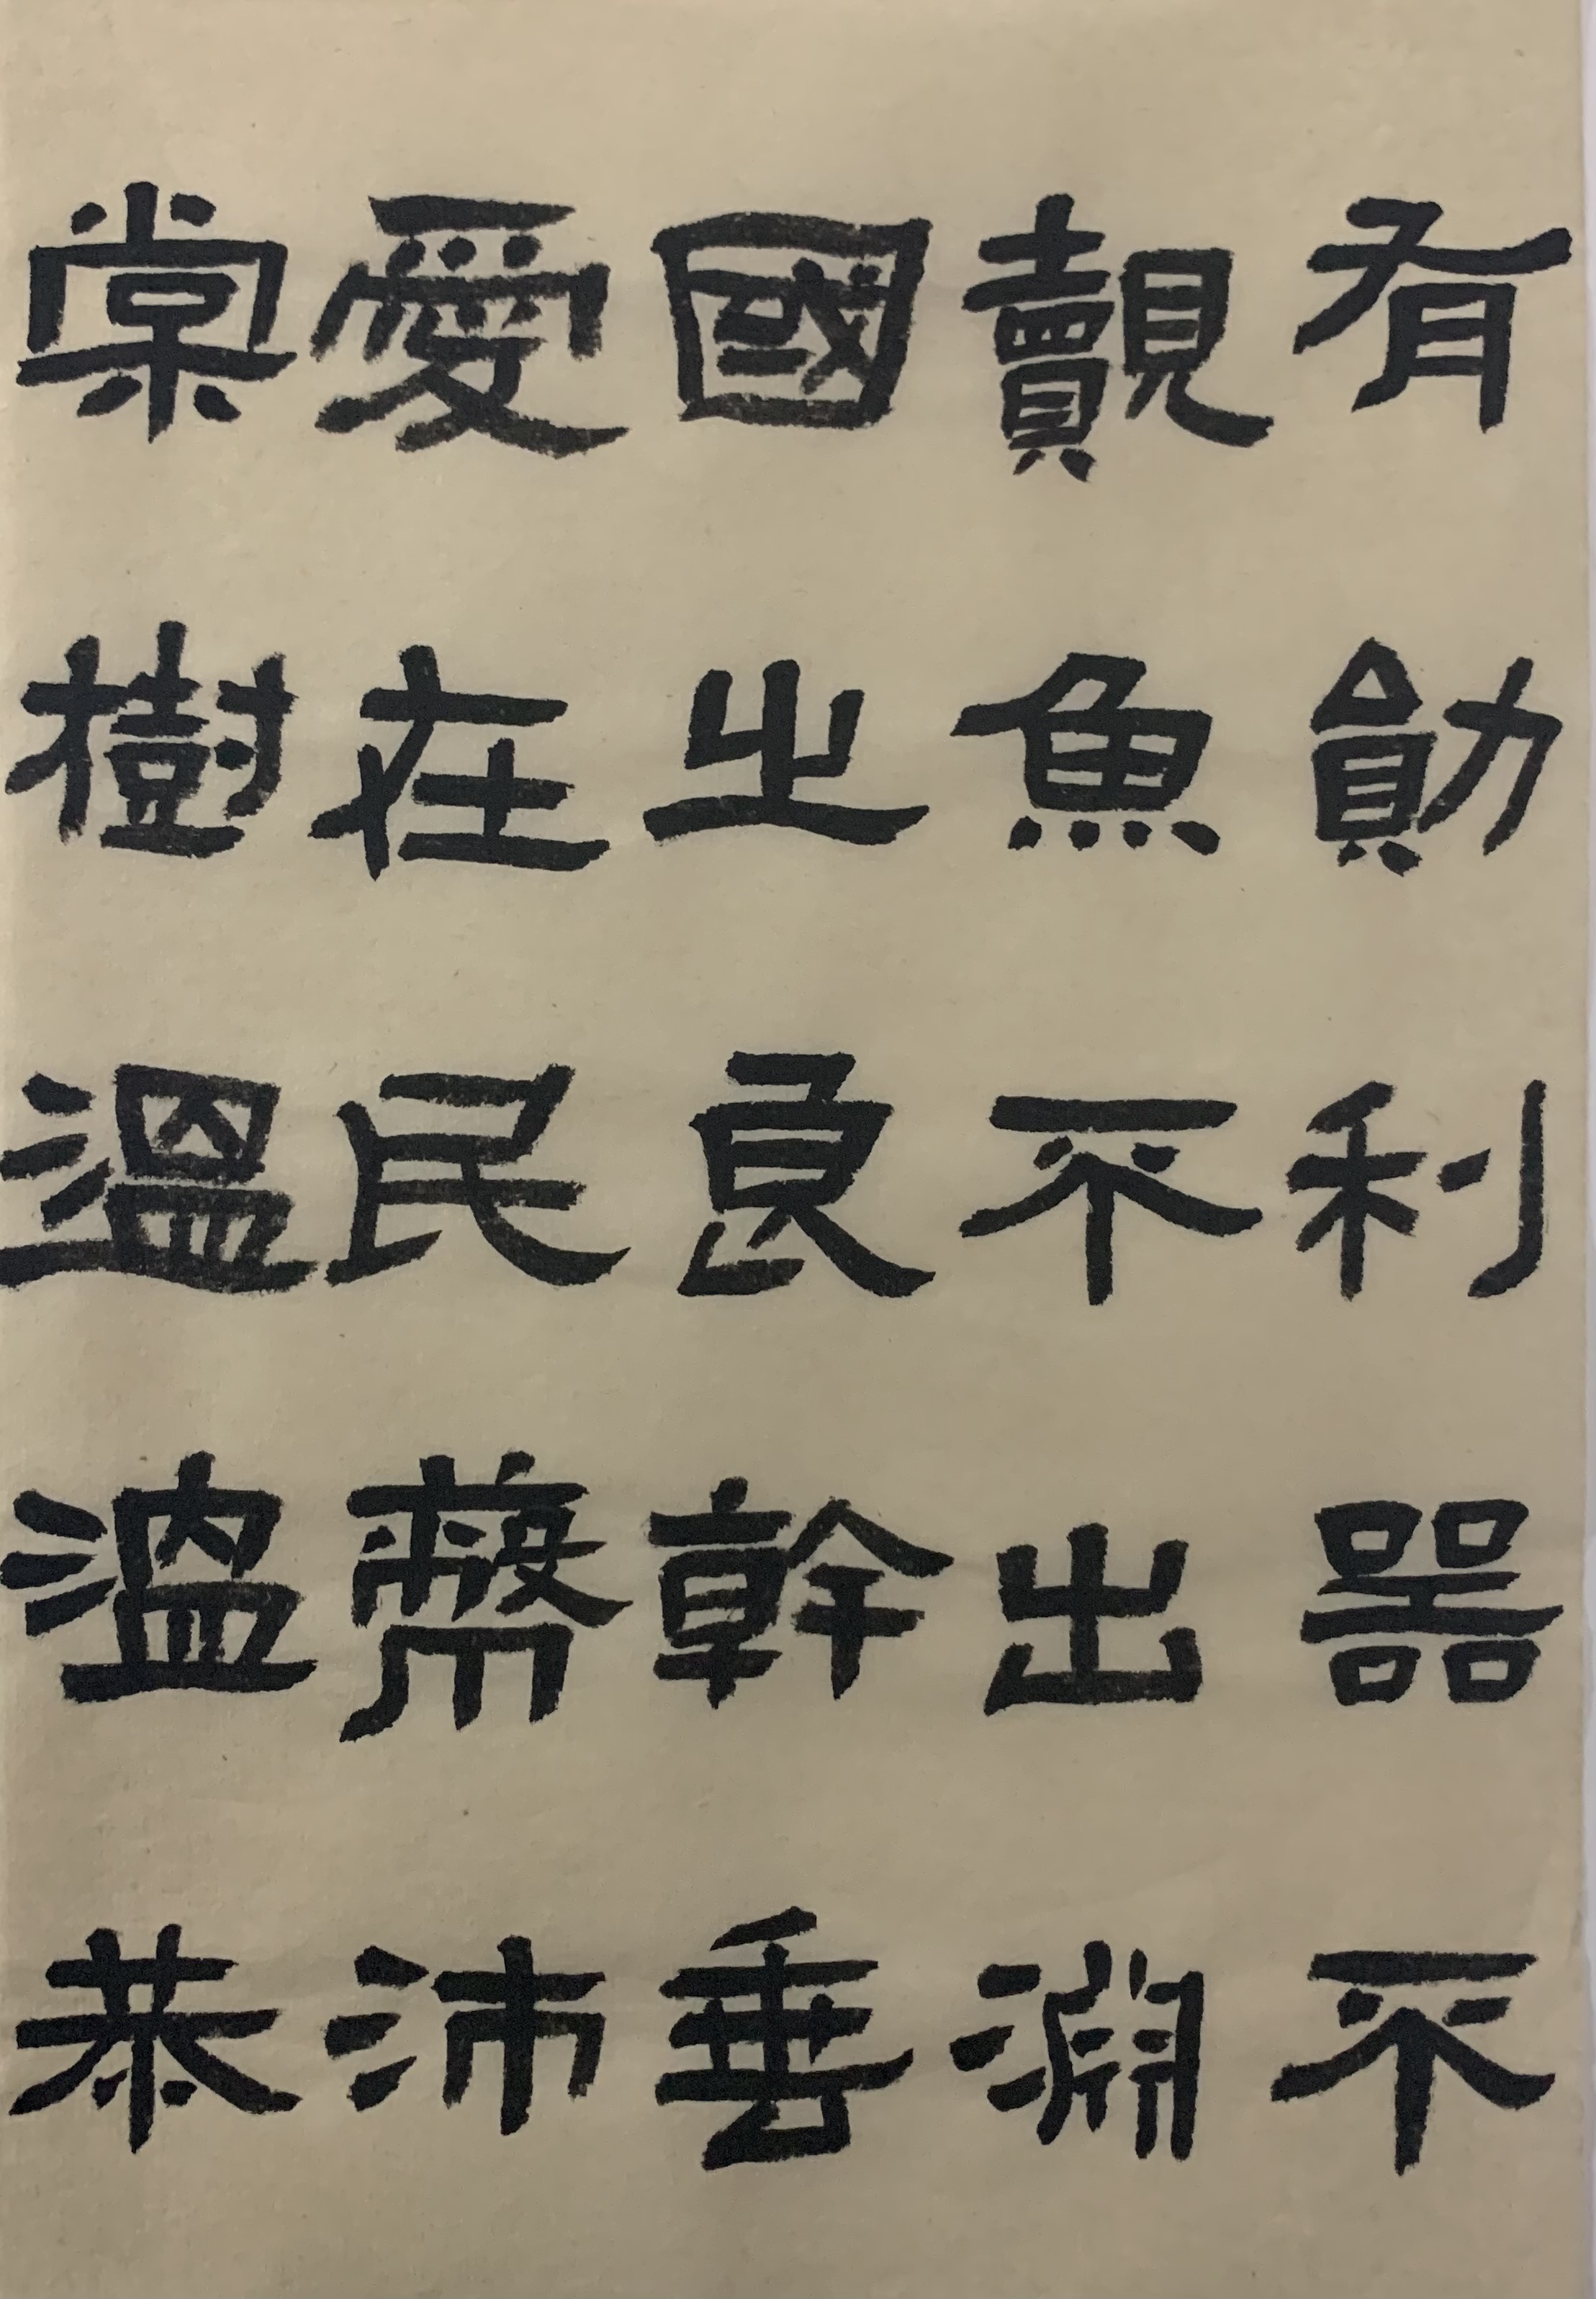 有勛利器不
覿魚不出淵
國之良幹垂
愛在民蔽沛
棠樹溫溫恭